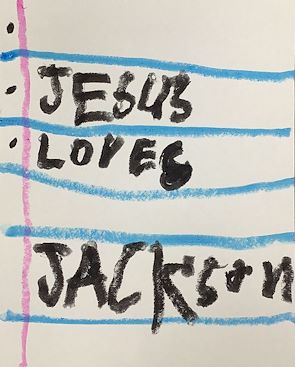 JESUS
LOVES
JACKSON